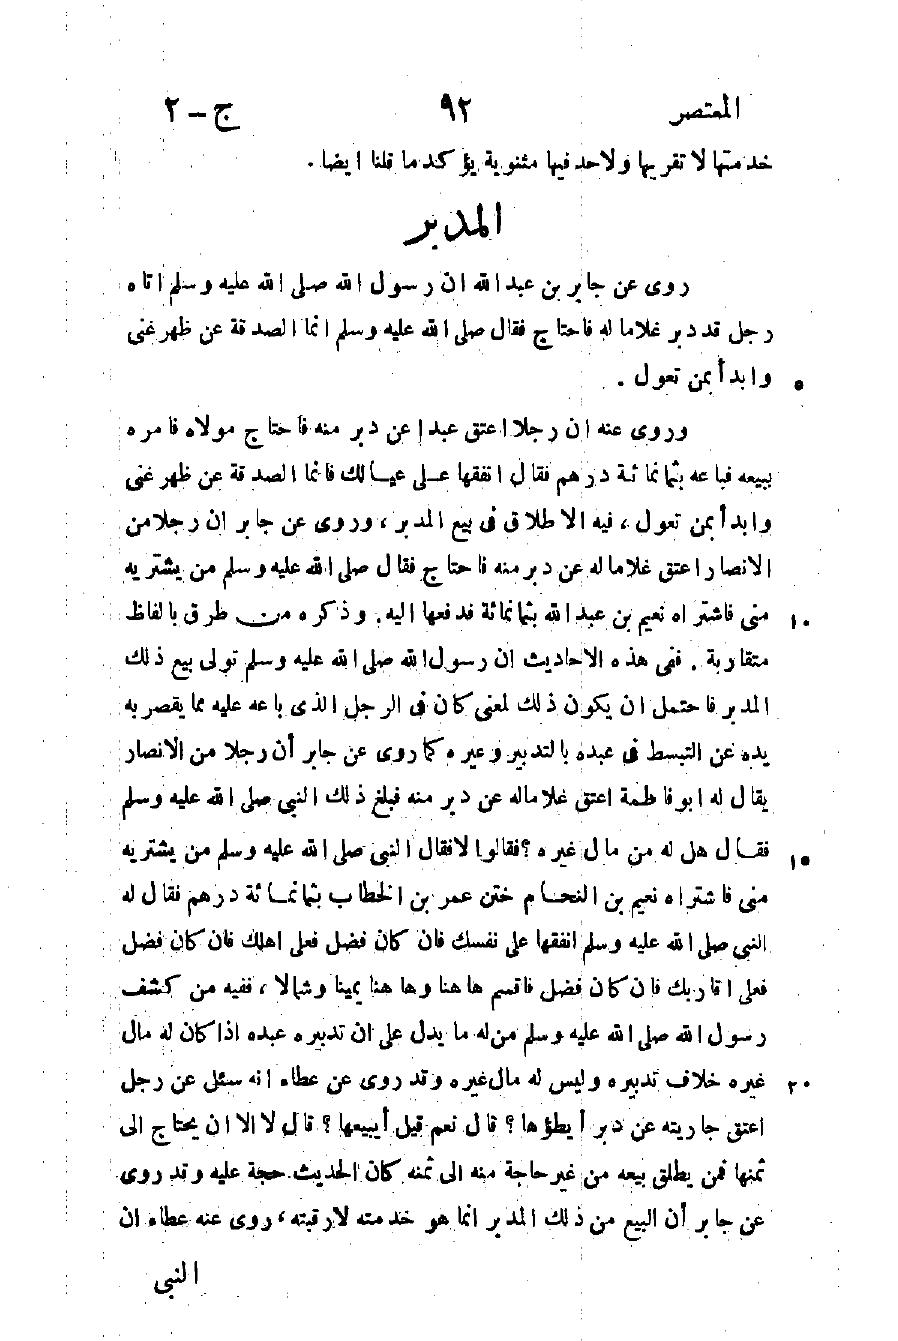 المعتصر ٩٢ ج – ٢
خدمتها لا تقربها ولاحد فيها مثنوية يؤكد ما قلنا ايضا .
المدبر
روى عن جابر بن عبد الله ان رسول الله صلى الله عليه وسلم اتاه
رجل قد دبر غلاما له فاحتاج فقال صلى الله عليه وسلم انما الصدقة عن ظهر غنى
وابدأ بمن تعول . ٥
وروى عنه ان رجلا اعتق عبدا عن دبر منه فاحتاج مولاه فامره
ببيعه فباعه بثمانمائة درهم فقال انفقها على عيالك فانما الصدقة عن ظهر غنى
وابدأ بمن تعول ، فيه الاطلاق فى بيع المدبر ، وروى عن جابر ان رجلا من
الانصار اعتق غلاما له عن دبر منه فاحتاج فقال صلى الله عليه وسلم من يشتريه
منى فاشتراه نعيم بن عبد الله بثمانمائة فدفعها اليه . وذكره من طرق بالفاظ ١٠
متقاربة . ففى هذه الاحاديث ان رسول الله صلى الله عليه وسلم تولى بيع ذلك
المدبر فاحتمل ان يكون ذلك لمعنى كان فى الرجل الذى باعه عليه مما يقصر به
يده عن التبسط فى عبده بالتدبير وغيره كما روى عن جابر أن رجلا من الانصار
يقال له ابو فاطمة اعتق غلاما له عن دبر منه فبلغ ذلك النبى صلى الله عليه وسلم
فقال هل له من مال غيره ؟ فقالوا لا فقال النبى صلى الله عليه وسلم من يشتريه ١٥
منى فاشتراه نعيم بن النحام ختن عمر بن الخطاب بثمانمائة درهم فقال له
النبى صلى الله عليه وسلم انفقها على نفسك فان كان فضل فعلى اهلك فان كان فضل
فعلى اقاربك فان كان فضل فاقسم هاهنا وهاهنا يمينا وشمالا ، ففيه من كشف
رسول الله صلى الله عليه وسلم من له ما يدل على ان تدبيره عبده اذا كان له مال
غيره خلاف تدبيره وليس له مال غيره وقد روى عن عطاء انه سئل عن رجل ٢٠
اعتق جاريته عن دبر أيطؤها ؟ قال نعم قيل أيبيعها ؟ قال لا الا ان يحتاج الى
ثمنها فمن يطلق بيعه من غير حاجة منه الى ثمنه كان الحديث حجة عليه وقد روى
عن جابر أن البيع من ذلك المدبر انما هو خدمته لا رقبته ، روى عنه عطاء ان
النبى